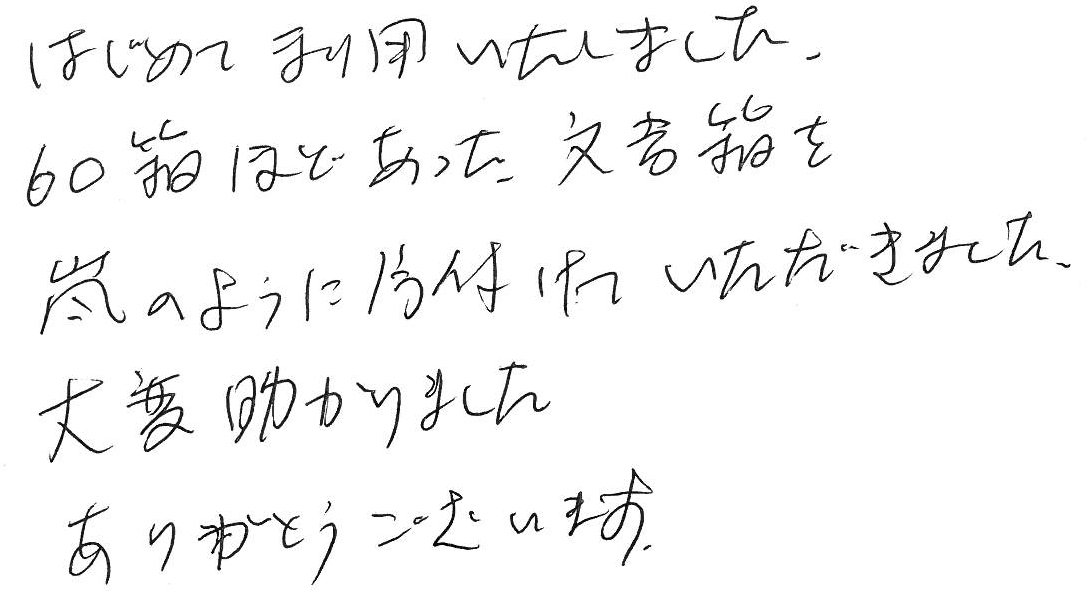 はじめて利用いたしました。
60箱ほどあった文書箱を
嵐のように片付けていただきました。
大変助かりました
ありがとうございます。